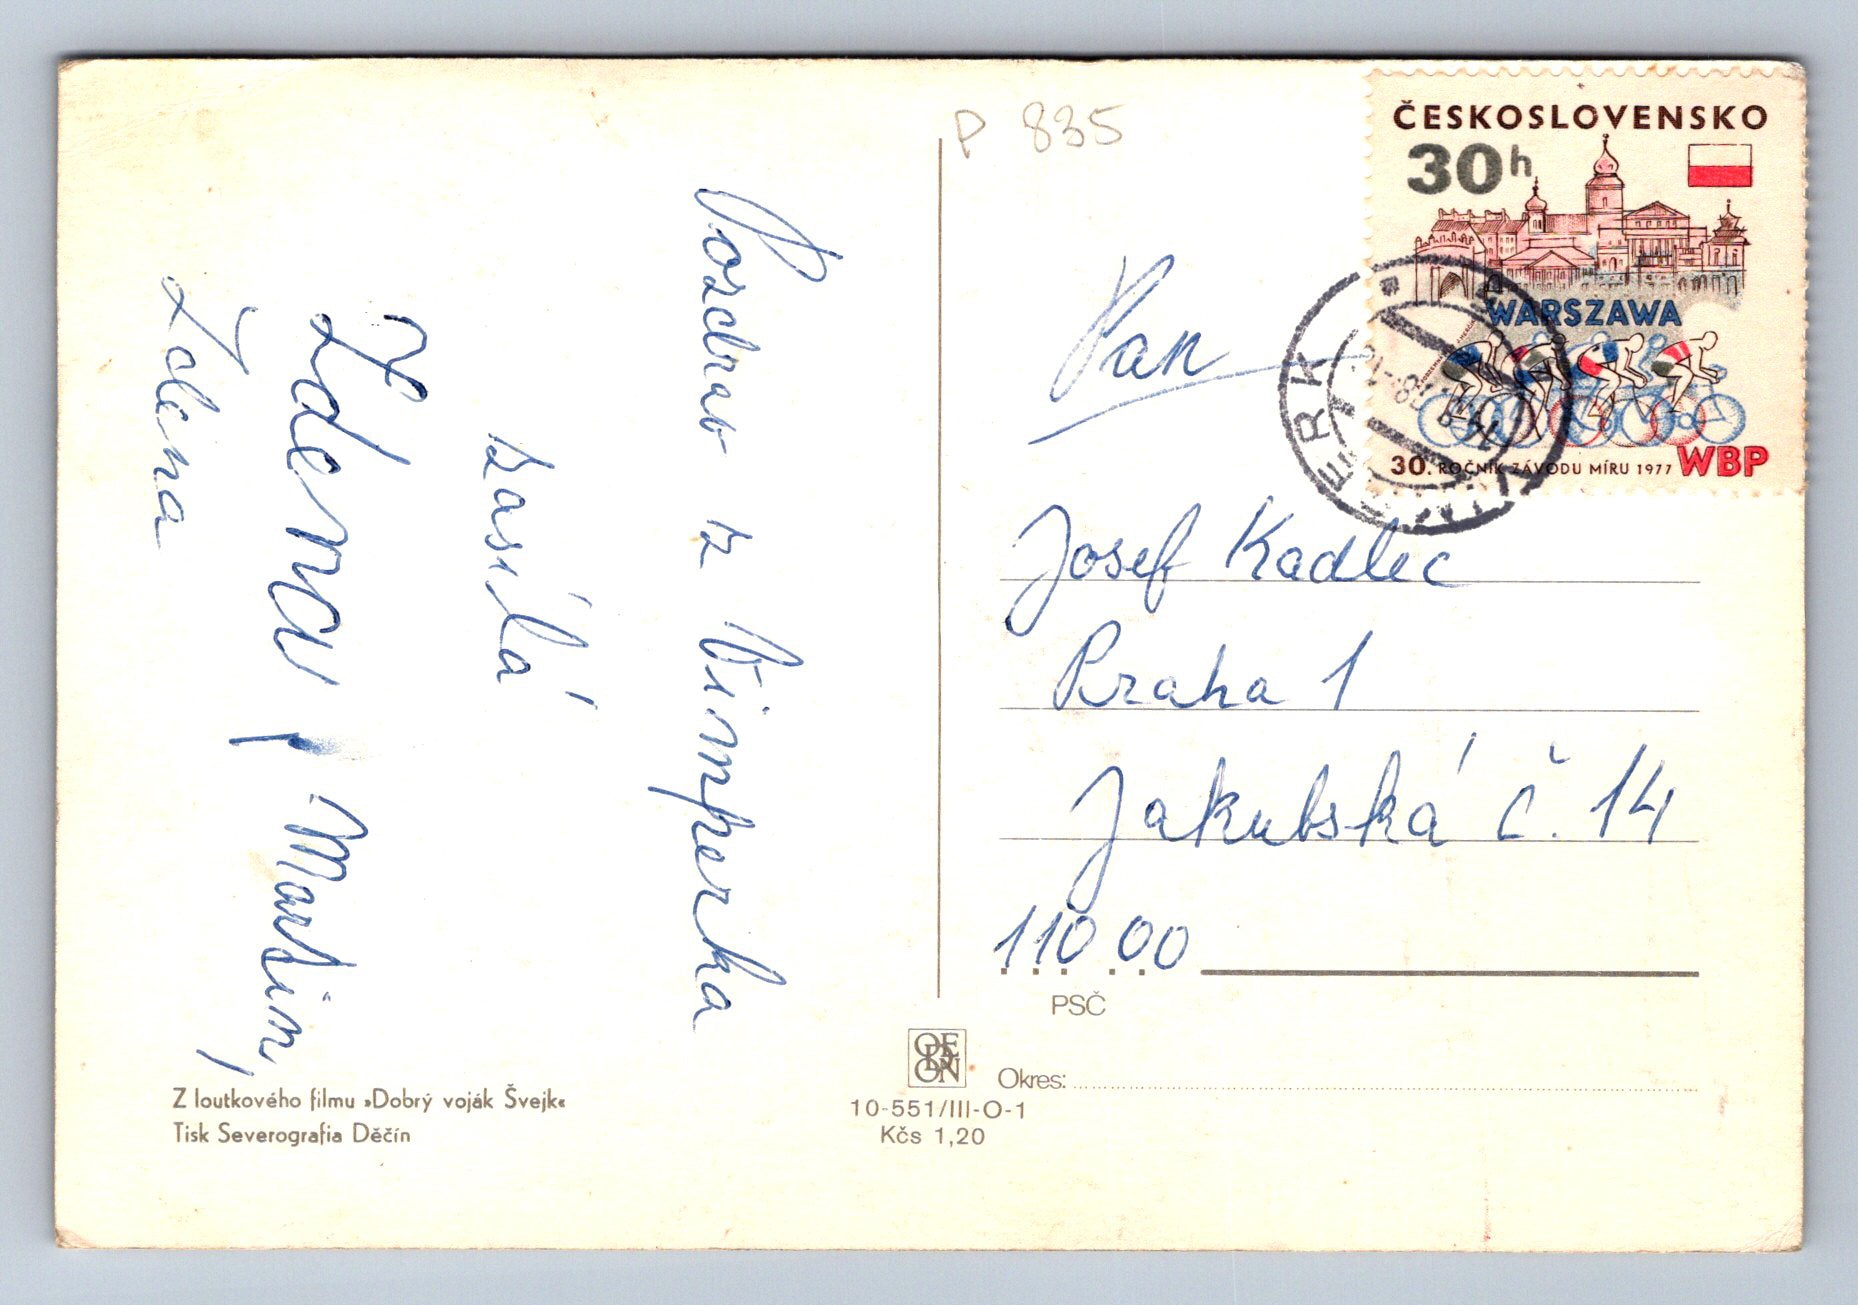 P 835
ČESKOSLOVENSKO
30h
WARSZAWA
30. ROČNÍK ZÁVODU MÍRU 1977 WBP
Pozdrav z Vimperka
zasílá
Zdena, Martin,
Pan
Josef Kadlec
Praha 1
Jakubská č. 14
110 00
PSČ
ODEON
Okres:
10-551/III-O-1
Kčs 1,20
Z loutkového filmu »Dobrý voják Švejk«
Tisk Severografia Děčín